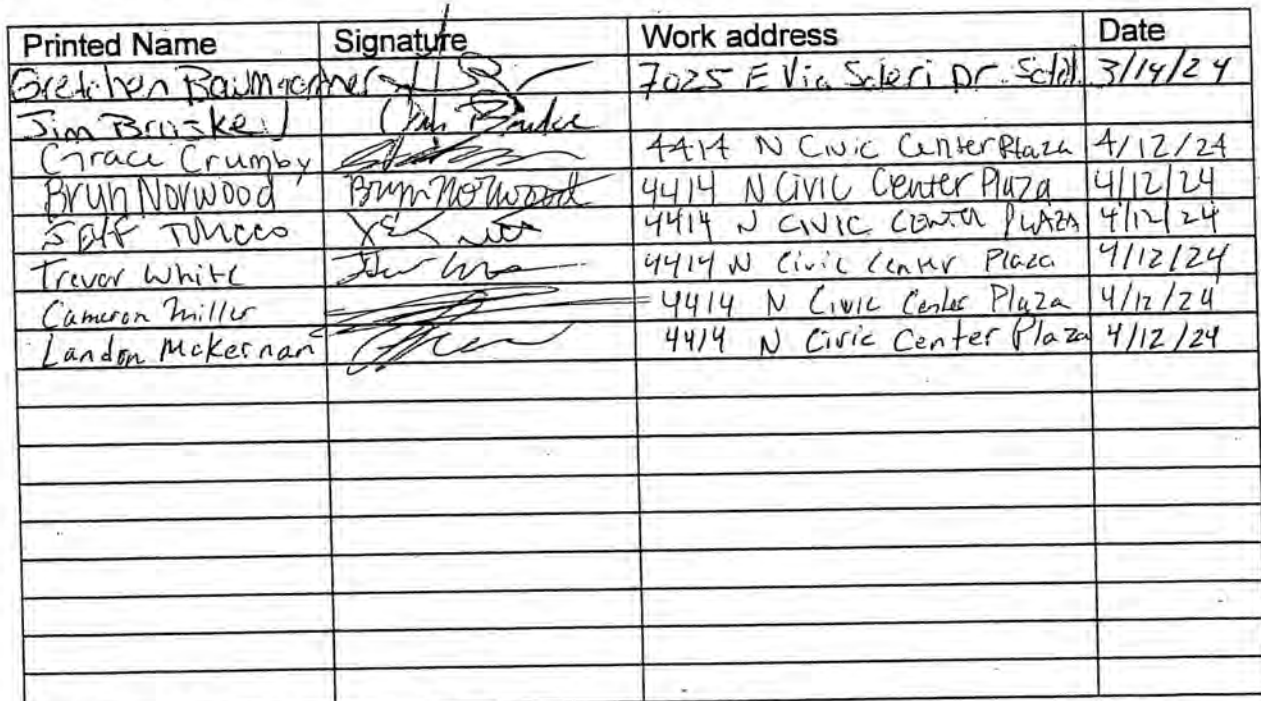 Printed Name Signature Work address Date
Gretchen Baumgartner 7025 E Via Soleri Dr. Scotd. 3/14/24
Jim Bruske Jim Bruske
Grace Crumby 4414 N Civic Center Plaza 4/12/24
Bryn Norwood Bryn Norwood 4414 N Civic Center Plaza 4/12/24
Jeff 4414 N CIVIC CENTER PLAZA 4/12/24
Trevor White 4414 N Civic Center Plaza 4/12/24
Cameron Miller 4414 N Civic Center Plaza 4/12/24
Landon McKernan 4414 N Civic Center Plaza 4/12/24